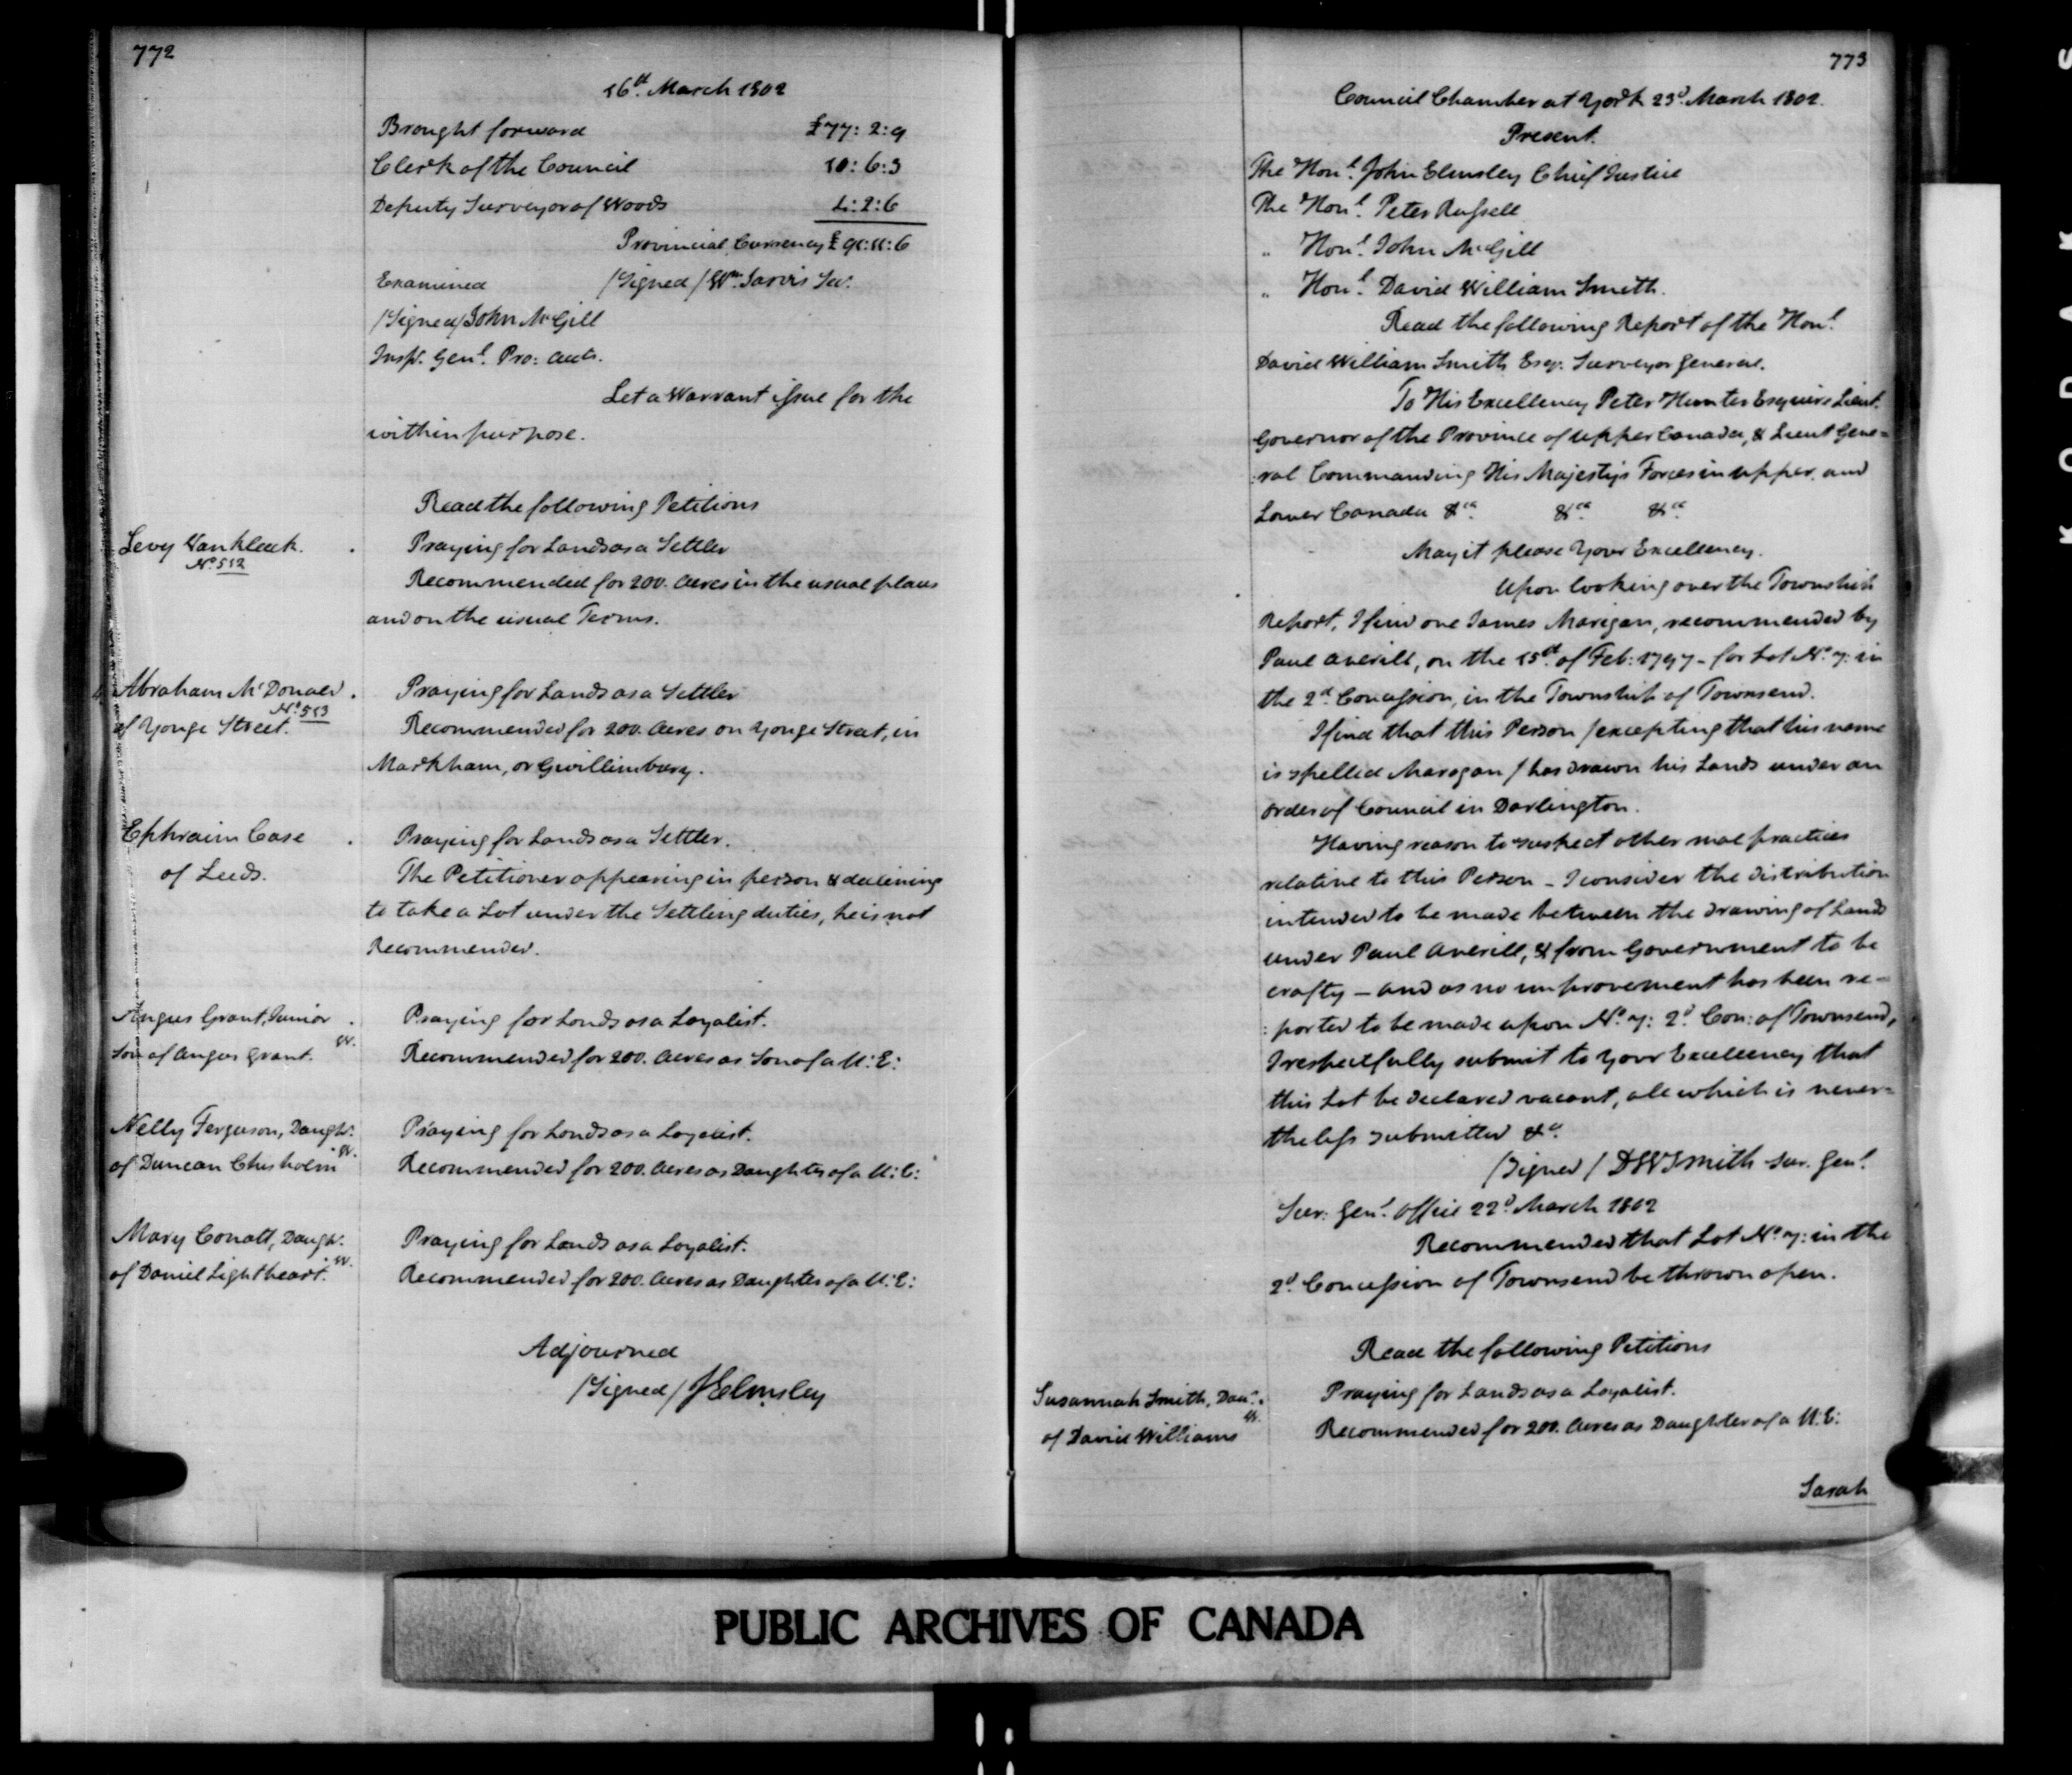 772
16th March 1802
Brought forward £77: 2: 9
Clerk of the Council 10: 6: 3
Deputy Surveyor of Woods 4: 2: 6
Provincial Currency £91: 11: 6
Examined /Signed/ Wm. Jarvis Sec.
/Signed/ John McGill
Insp. Genl. Pro: Accts.
Let a Warrant issue for the
within purpose.
Read the following Petitions
Levy Vankleek. Praying for Lands as a Settler
No. 512 Recommended for 200. Acres in the usual places
and on the usual Terms.
Abraham McDonald. Praying for Lands as a Settler
No. 513
of Yonge Street. Recommended for 200. Acres on Yonge Street, in
Markham, or Gwillimbury.
Ephraim Case Praying for Lands as a Settler.
of Leeds. The Petitioner appearing in person & declining
to take a Lot under the Settling duties, he is not
Recommended.
Angus Grant, Junior Praying for Lands as a Loyalist.
Son of Angus Grant. W. Recommended for 200. Acres as Son of a U: E:
Nelly Ferguson, Daughr. Praying for Lands as a Loyalist.
of Duncan Chisholm W. Recommended for 200. Acres as Daughter of a U: E:
Mary Conatt, Daughr. Praying for Lands as a Loyalist.
of Daniel Lightheart. W. Recommended for 200. Acres as Daughter of a U: E:
Adjourned
/Signed/ J Elmsley
773
Council Chamber at York 23d. March 1802.
Present.
The Honl. John Elmsley Chief Justice
The Honl. Peter Russell
" Honl. John McGill
" Honl. David William Smith.
Read the following Report of the Honl.
David William Smith Esqr. Surveyor General.
To His Excellency Peter Hunter Esquire Lieut.
Governor of the Province of Upper Canada, & Lieut Gene=
:ral Commanding His Majesty's Forces in Upper, and
Lower Canada &ca. &ca. &ca.
May it please Your Excellency.
Upon looking over the Township
Report, I find one James Marigan, recommended by
Paul Averill, on the 15th. of Feb: 1797 - for Lot No. 7: in
the 2d. Concession, in the Township of Townsend.
I find that this Person /excepting that his name
is spelled Maragan/ has drawn his Lands under an
order of Council in Darlington.
Having reason to suspect other mal practices
relative to this Person - I consider the distribution
intended to be made between the drawing of Lands
under Paul Averill, & from Government to be
crafty - and as no improvement has been re-
:ported to be made upon No. 7: 2d. Con: of Townsend,
I respectfully submit to Your Excellency that
this Lot be declared vacant, all which is never=
theless submitted &ca.
/Signed/ D W Smith Sur. Genl.
Sur: Genl. Office 22d. March 1802
Recommended that Lot No. 7: in the
2d. Concession of Townsend be thrown open.
Read the following Petitions
Susannah Smith, Daur. Praying for Lands as a Loyalist.
of David Williams W. Recommended for 200. Acres as Daughter of a U: E:
Sarah
PUBLIC ARCHIVES OF CANADA